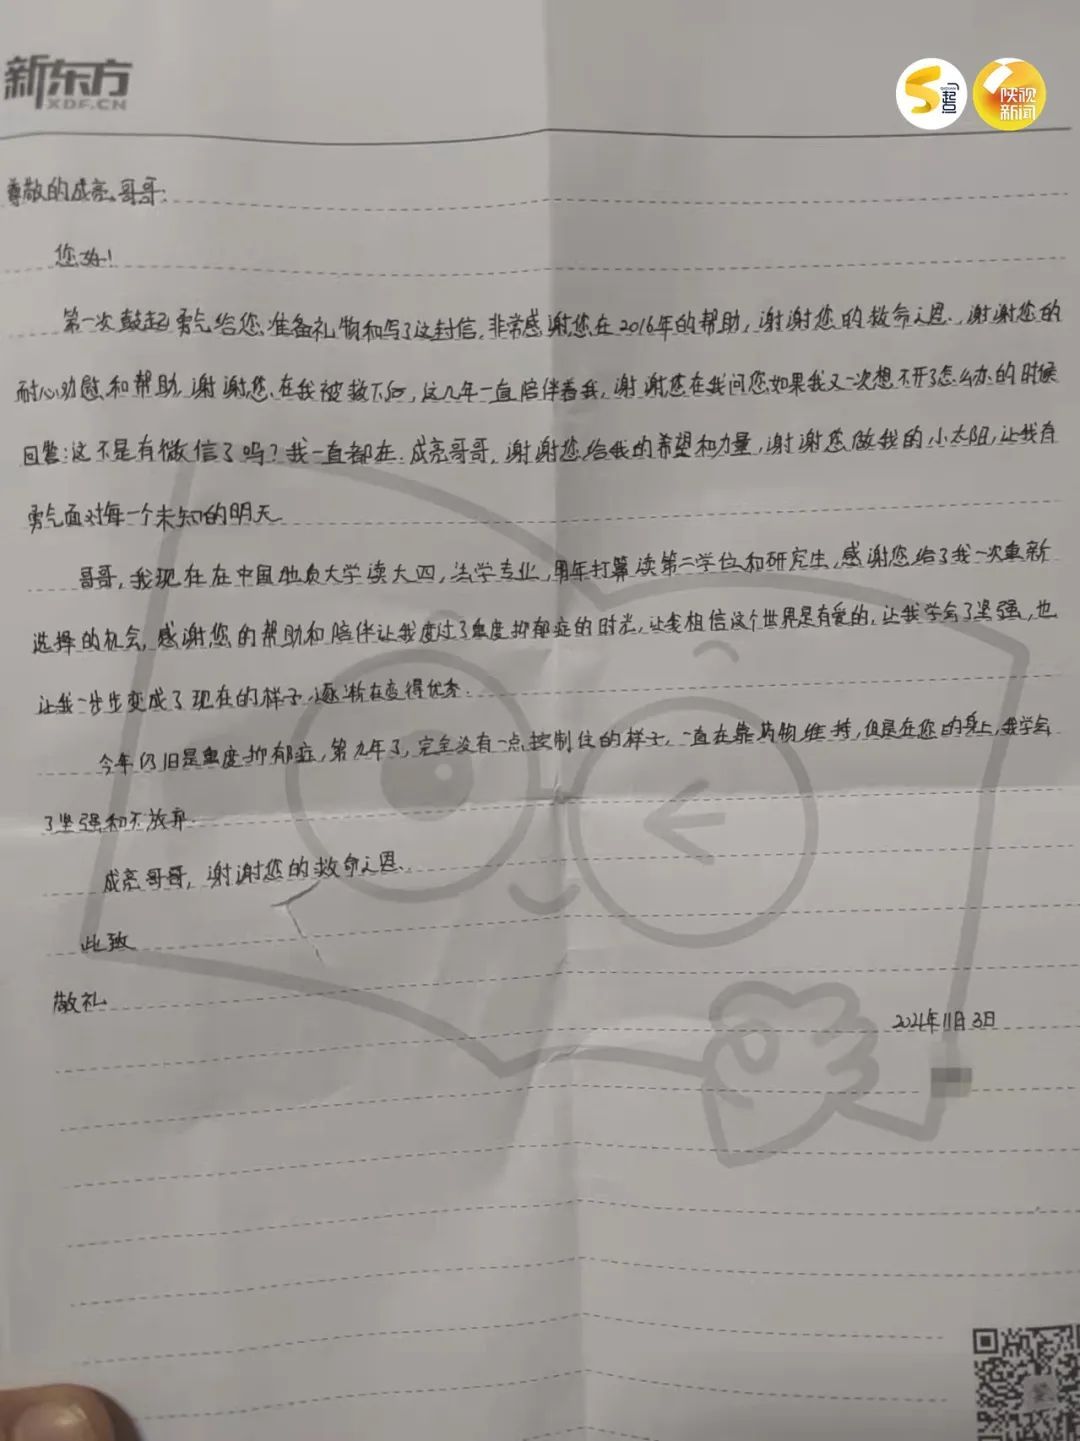 新东方
XDF.CN
起点
陕视
新闻
尊敬的成亮哥哥:
您好!
第一次鼓起勇气给您准备礼物和写了这封信,非常感谢您在2016年的帮助,谢谢您的救命之恩,谢谢您的
耐心劝慰和帮助,谢谢您在我被救下后,这几年一直陪伴着我,谢谢您在我问您如果我又一次想不开了怎么办的时候
回答:这不是有微信了吗?我一直都在.成亮哥哥,谢谢您给我的希望和力量,谢谢您做我的小太阳,让我有
勇气面对每一个未知的明天
哥哥,我现在在中国地质大学读大四,法学专业,明年打算读第二学位和研究生,感谢您给了我一次重新
选择的机会,感谢您的帮助和陪伴让我度过了重度抑郁症的时光,让我相信这个世界是有爱的,让我学会了坚强,也
让我一步步变成了现在的样子,逐渐在变得优秀.
今年仍旧是重度抑郁症,第九年了,完全没有一点控制住的样子,一直在靠药物维持,但是在您的身上,我学会
了坚强和不放弃.
成亮哥哥,谢谢您的救命之恩.
此致
敬礼
2021年11月3日